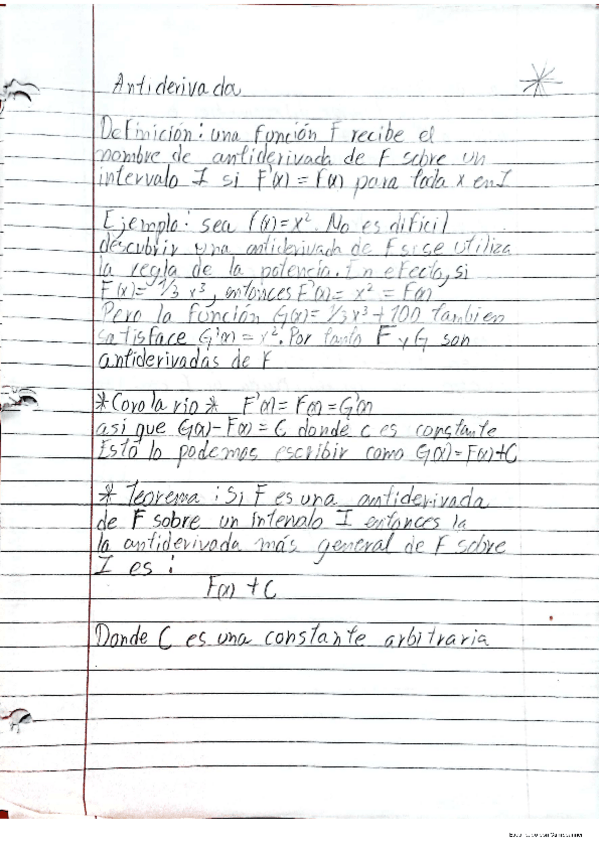 Antiderivada
Definición: una función F recibe el
nombre de antiderivada de F sobre un
intervalo I si F'(x) = F(x) para toda x en I
Ejemplo: sea f(x)=x². No es dificil
descubrir una antiderivada de F si se utiliza
la regla de la potencia. En efecto, si
F(x)= 1/3 x³, entonces F'(x)= x² = F(x)
Pero la función G(x)= 1/3x³+100 tambien
satisface G'(x) = x². Por tanto F y G son
antiderivadas de F
*Corolario* F'(x)= F(x)=G'(x)
asi que G(x)-F(x)=C donde c es constante
Esto lo podemos escribir como G(x)=F(x)+C
* Teorema: Si F es una antiderivada
de F sobre un intervalo I entonces la
la antiderivada más general de F sobre
I es:
F(x) + C
Donde C es una constante arbitraria